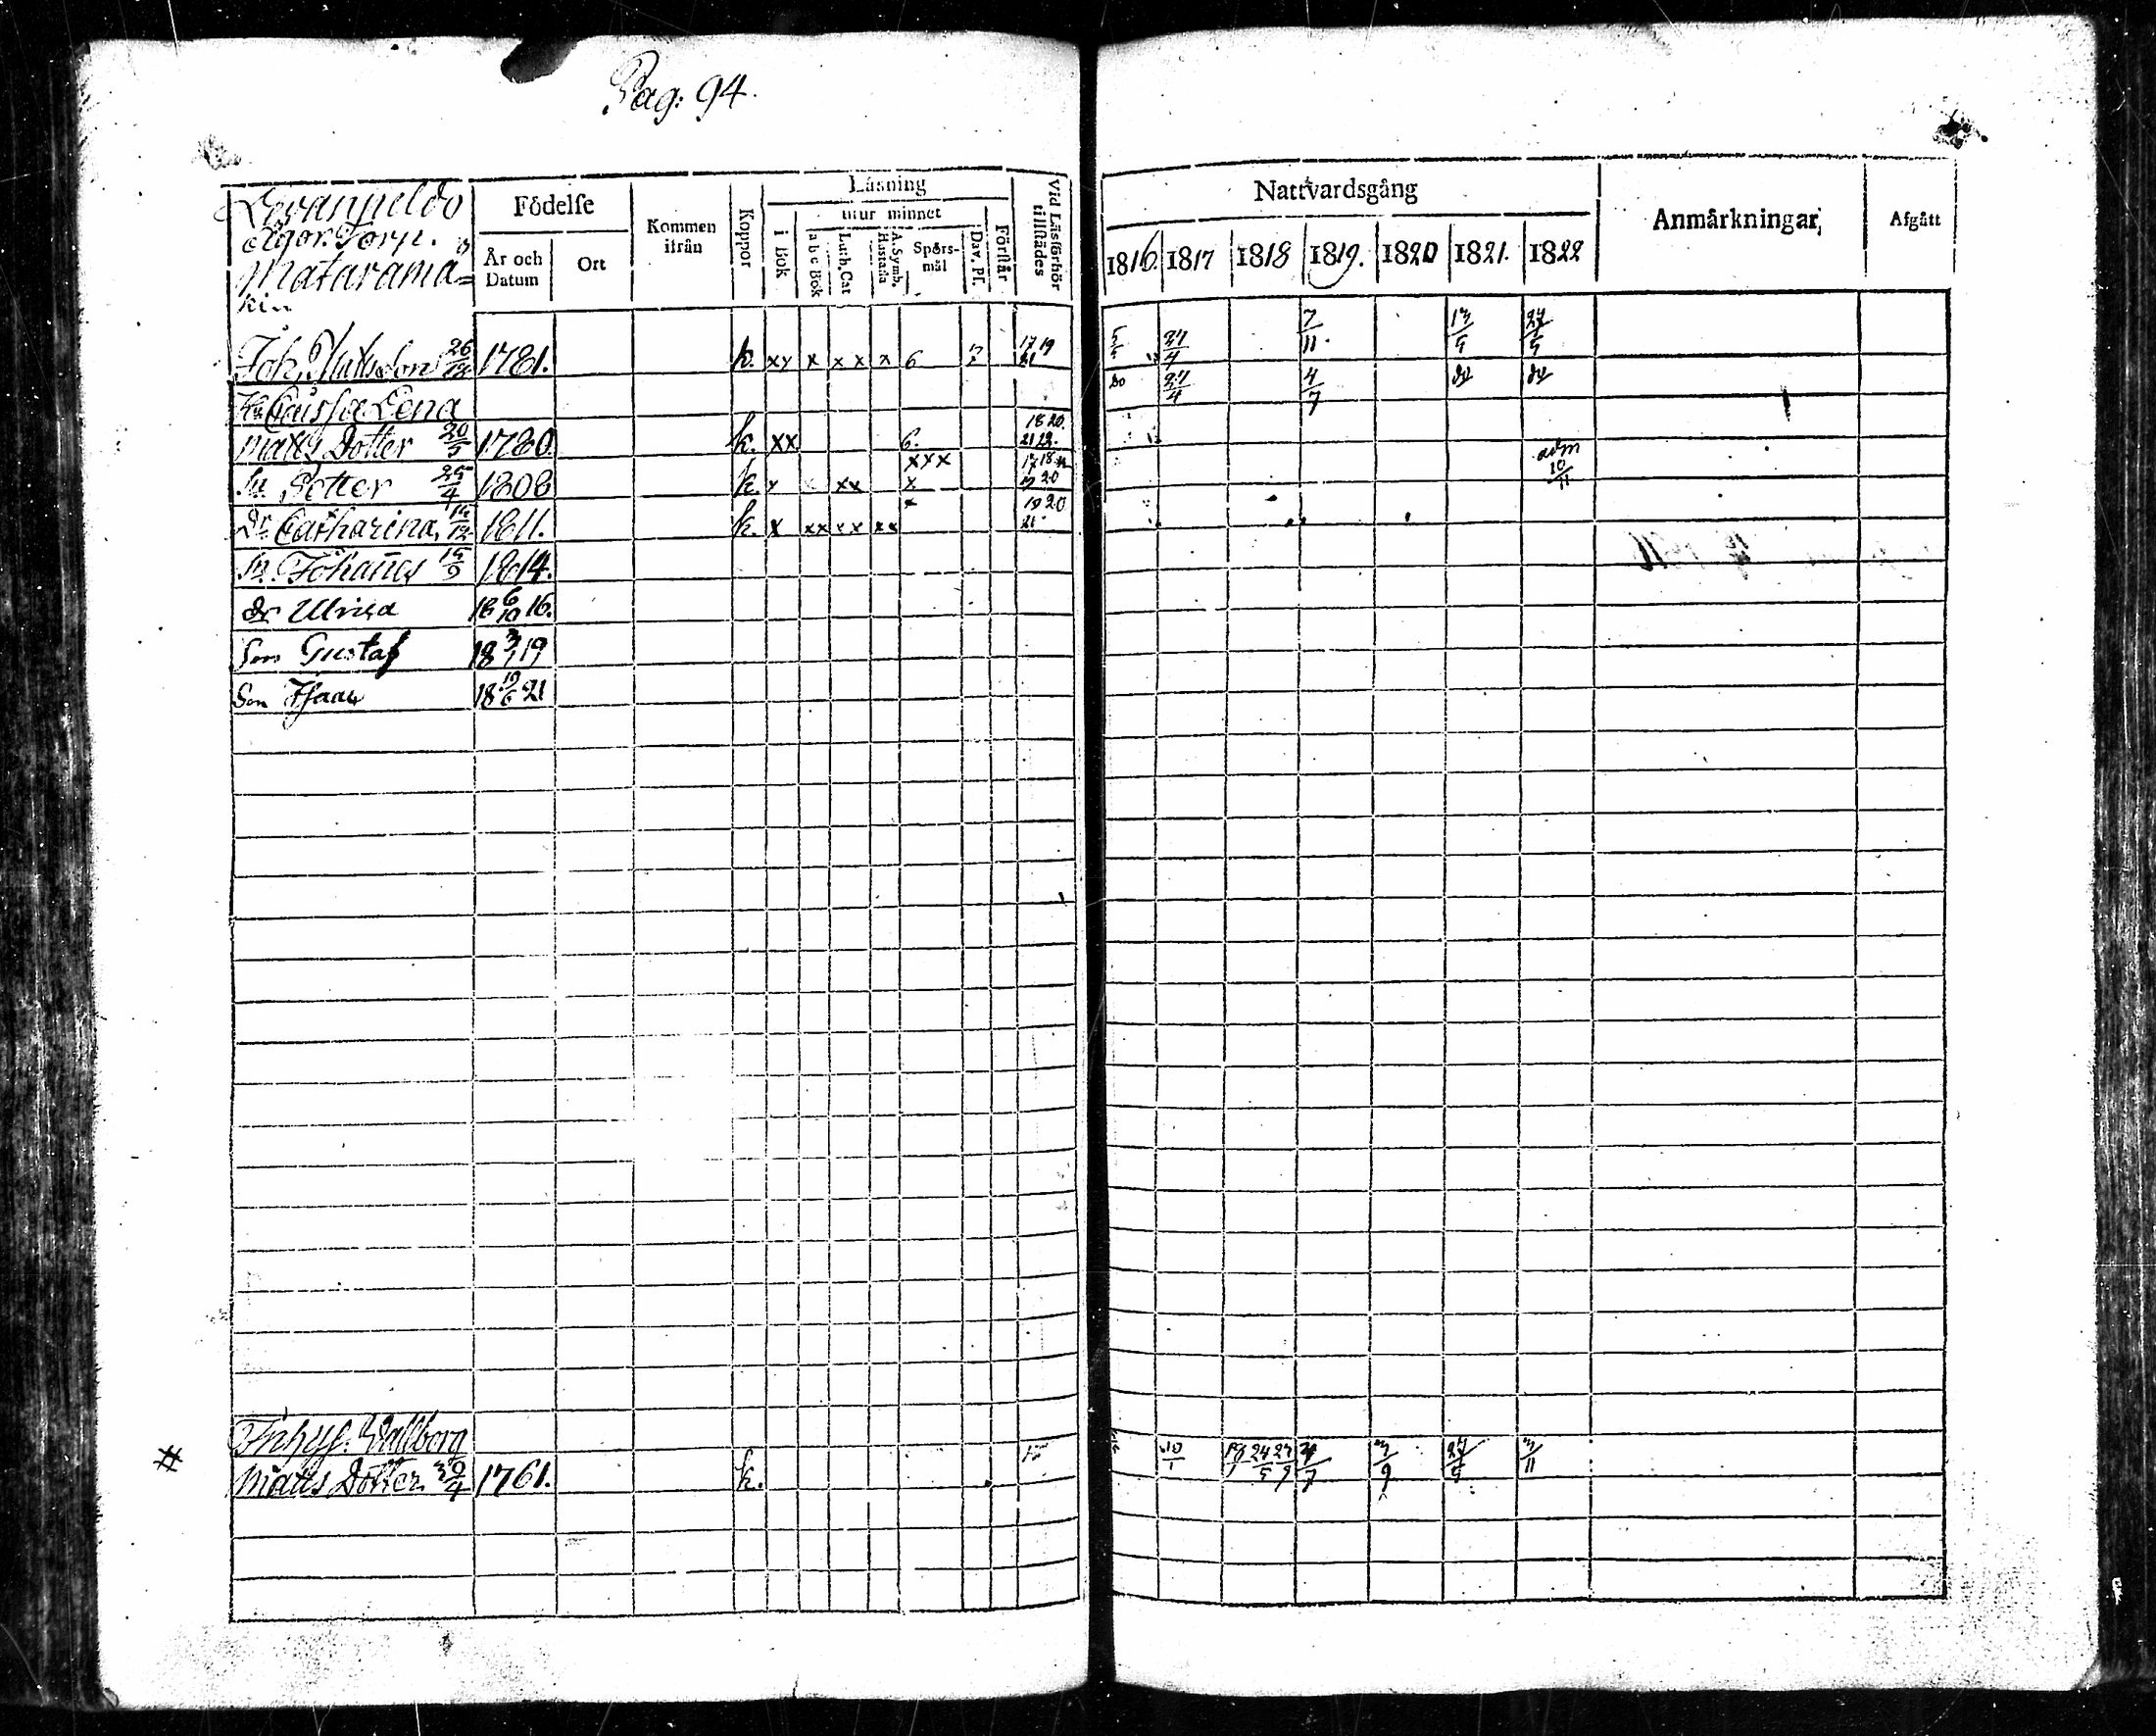 Pag: 94.
Levanpeldo
ägor. Torp.
Matarama=
kin
Födelse
År och Datum
Ort
Kommen ifrån
Koppor
Läsning
i Bok
utur minnet
a b c Bok
Luth. Cat
A. Symb. Hustafla
Spörsmål
Dav. Ps.
Förstår
Vid Läsförhör tillstädes
Nattvardsgång
1816. 1817 1818 1819. 1820 1821. 1822
Anmärkningar
Afgått
Joh. Matsson 26/12 1781. k. xy x x x x 6 17 19 21 27/4 7/11. 13/5 24/5
do 27/4 4/7 do do
Hu Caisa Lena
Mats Dotter 20/5 1780. k. xx 6. 18 20. 21 22.
Sn Petter 25/4 1808 k. y xx xxx x 17 18 19 20 adm 10/11
Dr Catharina, 14/12 1811. k. x xx xx xx 19 20 21
Sn. Johanes 15/9 1814.
dr Ulrica 18 6/10 16.
Son Gustaf 18 3/1 19
Son Isaac 18 10/6 21
Inhys. Wallborg
# Mats Dotter 30/4 1761. k. 10/1 18/1 24/5 23/9 4/7 3/9 27/5 3/11